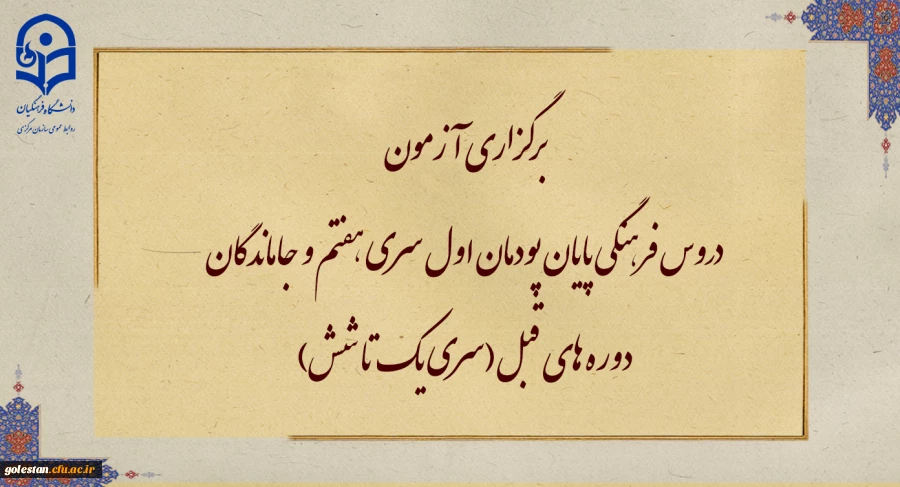 دانشگاه فرهنگیان
روابط عمومی سازمان مرکزی
برگزاری آزمون
دروس فرهنگی پایان پودمان اول سری هفتم و جاماندگان
دوره های قبل (سری یک تا شش)
golestan.cfu.ac.ir